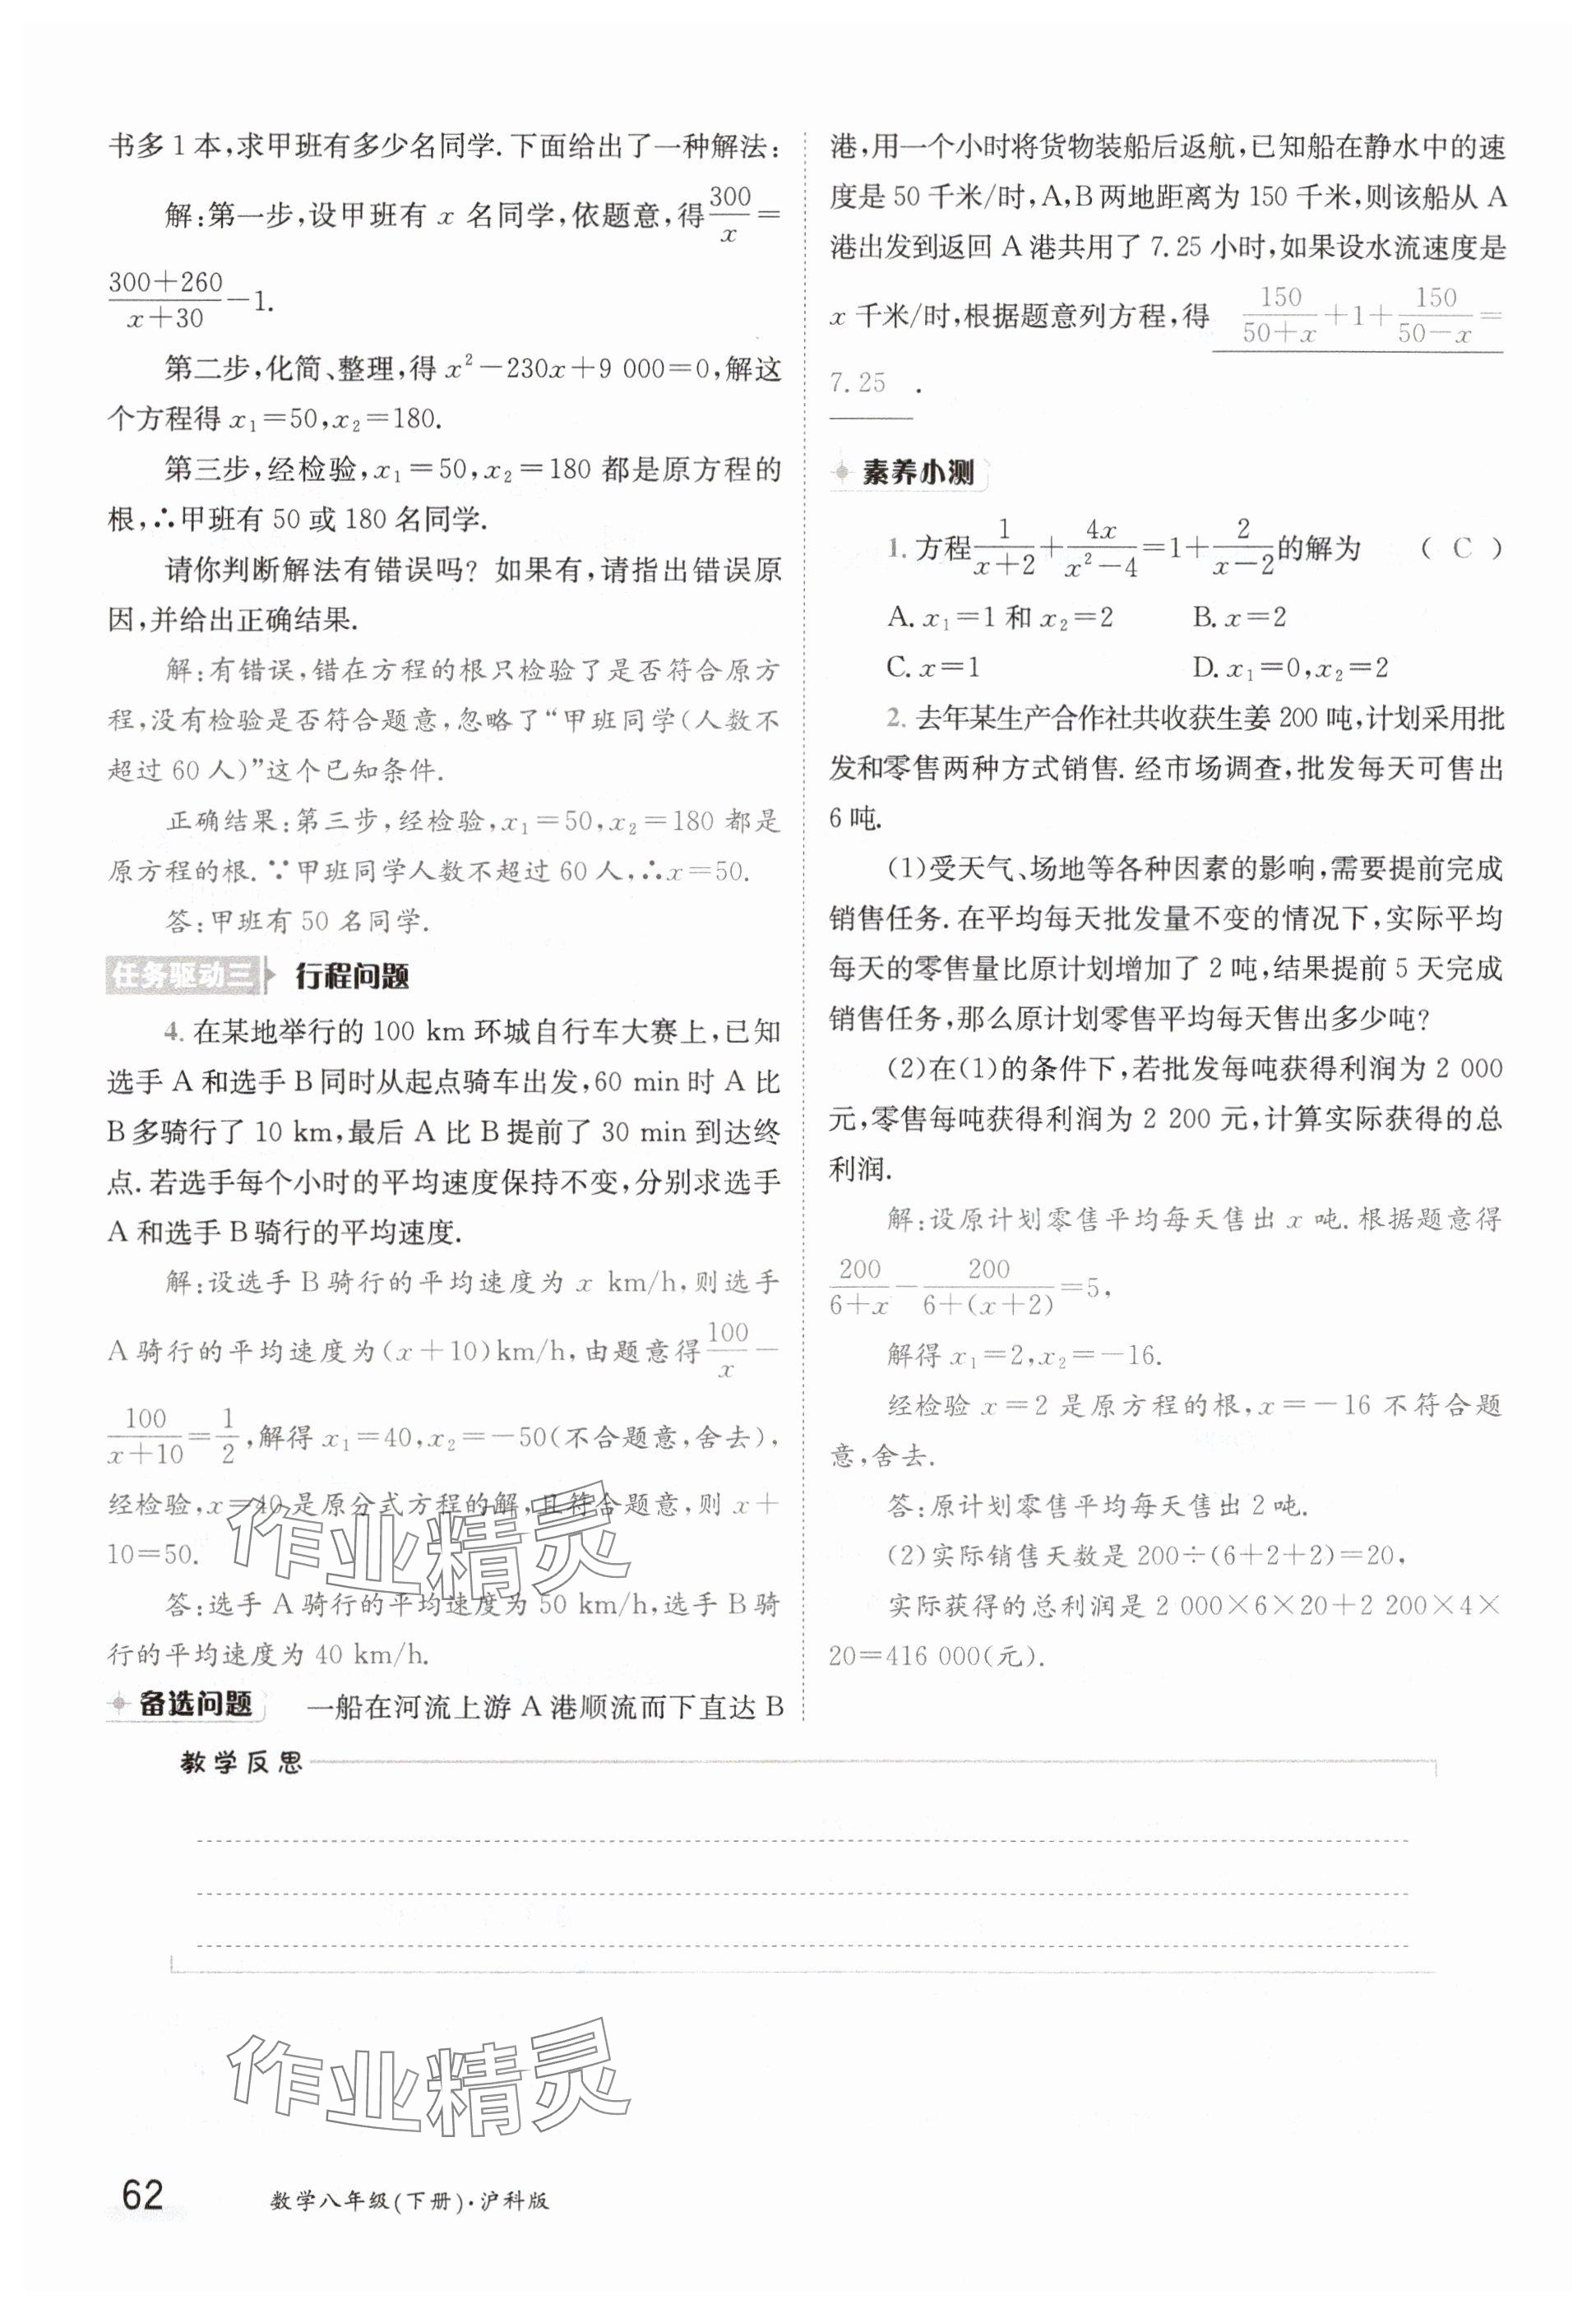 书多1本,求甲班有多少名同学.下面给出了一种解法:
解:第一步,设甲班有 x 名同学,依题意,得 300/x =
(300+260)/(x+30) −1.
第二步,化简、整理,得 x²−230x+9 000=0,解这
个方程得 x₁=50,x₂=180.
第三步,经检验,x₁=50,x₂=180 都是原方程的
根,∴甲班有 50 或 180 名同学.
请你判断解法有错误吗? 如果有,请指出错误原
因,并给出正确结果.
解:有错误,错在方程的根只检验了是否符合原方
程,没有检验是否符合题意,忽略了“甲班同学(人数不
超过 60 人)”这个已知条件.
正确结果:第三步,经检验,x₁=50,x₂=180 都是
原方程的根.∵甲班同学人数不超过 60 人,∴x=50.
答:甲班有 50 名同学.
任务驱动三 行程问题
4. 在某地举行的 100 km 环城自行车大赛上,已知
选手 A 和选手 B 同时从起点骑车出发,60 min 时 A 比
B 多骑行了 10 km,最后 A 比 B 提前了 30 min 到达终
点.若选手每个小时的平均速度保持不变,分别求选手
A 和选手 B 骑行的平均速度.
解:设选手 B 骑行的平均速度为 x km/h,则选手
A 骑行的平均速度为(x+10)km/h,由题意得 100/x −
100/(x+10) = 1/2,解得 x₁=40,x₂=−50(不合题意,舍去),
经检验,x=40 是原分式方程的解,且符合题意,则 x+
10=50.
答:选手 A 骑行的平均速度为 50 km/h,选手 B 骑
行的平均速度为 40 km/h.
备选问题 一船在河流上游 A 港顺流而下直达 B
港,用一个小时将货物装船后返航,已知船在静水中的速
度是 50 千米/时,A,B 两地距离为 150 千米,则该船从 A
港出发到返回 A 港共用了 7.25 小时,如果设水流速度是
x 千米/时,根据题意列方程,得 150/(50+x) +1+ 150/(50−x) =
7.25 .
素养小测
1. 方程 1/(x+2) + 4x/(x²−4) =1+ 2/(x−2) 的解为 ( C )
A. x₁=1 和 x₂=2 B. x=2
C. x=1 D. x₁=0,x₂=2
2. 去年某生产合作社共收获生姜 200 吨,计划采用批
发和零售两种方式销售.经市场调查,批发每天可售出
6 吨.
(1)受天气、场地等各种因素的影响,需要提前完成
销售任务.在平均每天批发量不变的情况下,实际平均
每天的零售量比原计划增加了 2 吨,结果提前 5 天完成
销售任务,那么原计划零售平均每天售出多少吨?
(2)在(1)的条件下,若批发每吨获得利润为 2 000
元,零售每吨获得利润为 2 200 元,计算实际获得的总
利润.
解:设原计划零售平均每天售出 x 吨.根据题意得
200/(6+x) − 200/(6+(x+2)) =5,
解得 x₁=2,x₂=−16.
经检验 x=2 是原方程的根,x=−16 不符合题
意,舍去.
答:原计划零售平均每天售出 2 吨.
(2)实际销售天数是 200÷(6+2+2)=20,
实际获得的总利润是 2 000×6×20+2 200×4×
20=416 000(元).
教学反思
作业精灵
作业精灵
62
数学八年级(下册)·沪科版